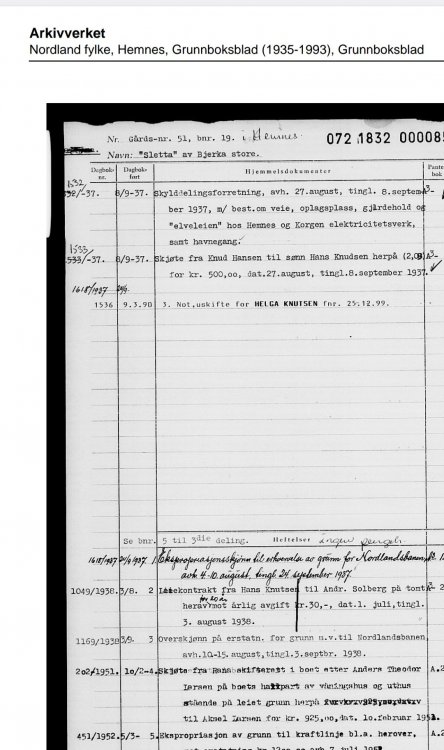 Arkivverket
Nordland fylke, Hemnes, Grunnboksblad (1935-1993), Grunnboksblad
Nr. Gårds-nr. 51, bnr. 19. i Hemnes
072 1832 00008
Navn: "Sletta" av Bjerka store.
Dagbok- nr. Dagbok- ført Hjemmelsdokumenter Pante- bok
1532
/-37. 8/9-37. Skylddelingsforretning, avh. 27.august, tingl. 8.septem A3-
ber 1937, m/ best.om veie, oplagsplass, gjårdehold og
"elveleien" hos Hemnes og Korgen elektricitetsverk,
samt havnegang.
1533
533/-37. 8/9-37. Skjøte fra Knud Hansen til sønn Hans Knudsen herpå (2,08) A3-
for kr. 500,oo, dat.27.august, tingl.8.september 1937.
1618/1937 24/9.
1536 9.3.90 3. Not,uskifte for HELGA KNUTSEN fnr. 25.12.99.
Se bnr. 5 til 3die deling. Heftelser ingen pengeh.
1618/1937 24/9 1937. 1 Ekspropriasjonsskjønn til erhvervelse av grunn for Nordlandsbanen,
avh. 4-10. august, tingl. 24. september 1937.
1049/1938. 3/8. 2 Leiekontrakt fra Hans Knutsen til Andr. Solberg på tomt A3- 2
for 20 år
herav mot årlig avgift kr.30,-, dat.1. juli,tingl.
3. august 1938.
1169/1938 3/9. 3 Overskjønn på erstatn. for grunn m.v.til Nordlandsbanen,
avh.10-15.august,tingl.3.septbr. 1938.
202/1951. 10/2-4. Skjøte fra Rana skifterett i boet etter Anders Theodor A.2
Larsen på boets halvpart av våningshus og uthus
stående på leiet grunn
til Aksel Larsen for kr. 925,oo,dat. 1o.februar 195
451/1952. 5/3- 5. Ekspropriasjon av grunn til kraftlinje bl.a. herover, A.2